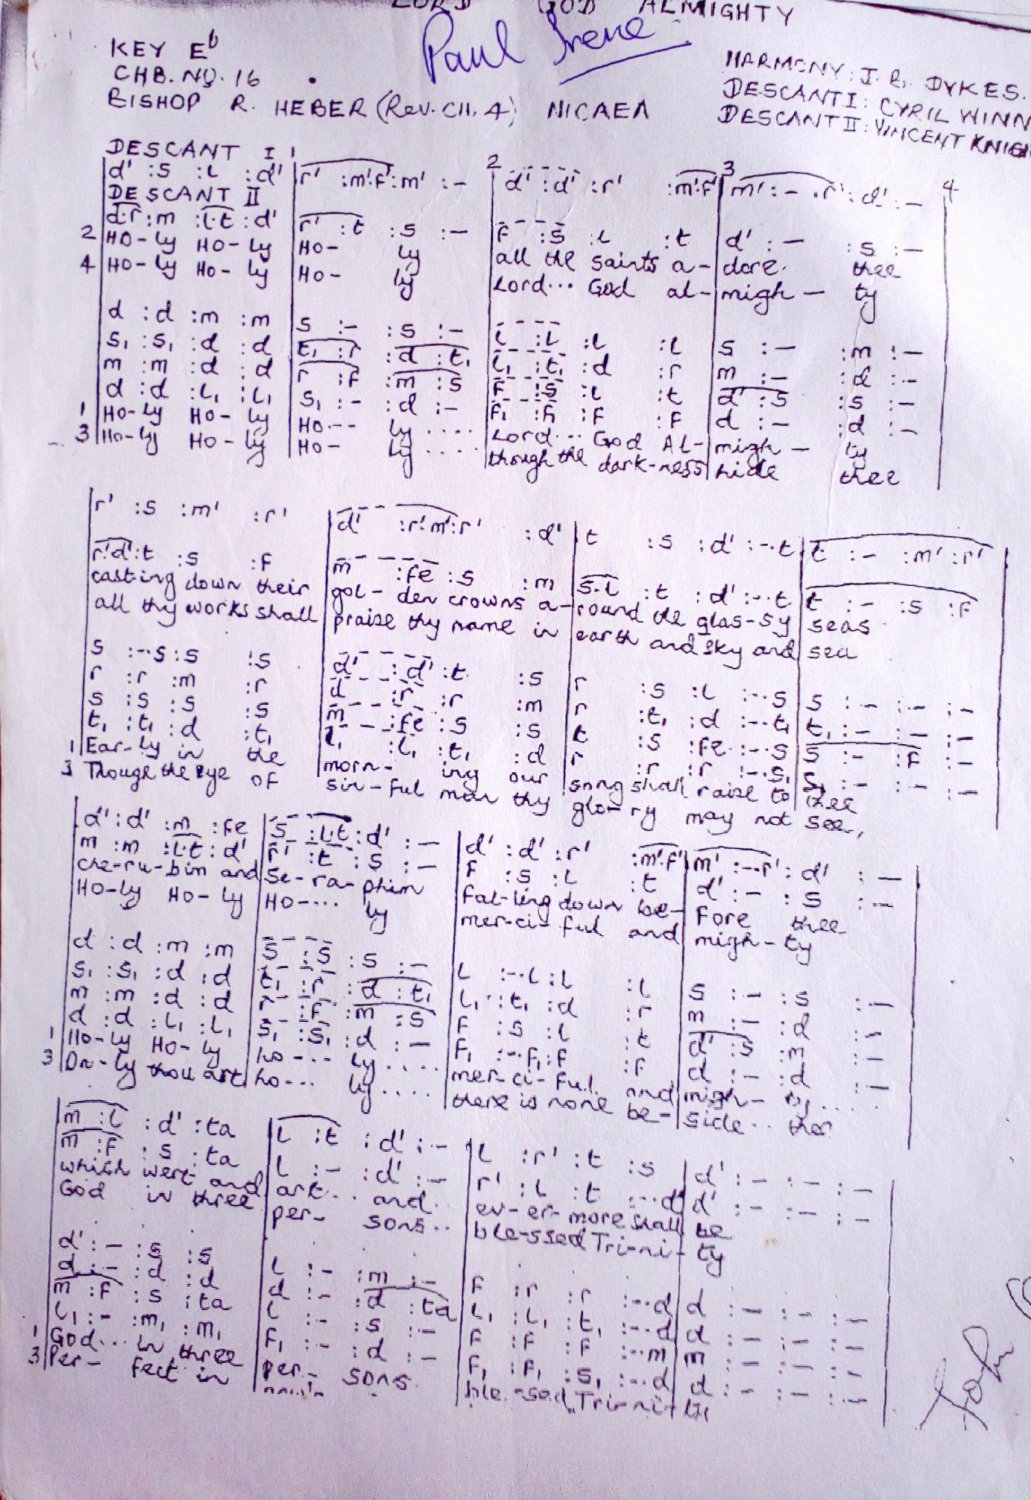 LORD GOD ALMIGHTY
Paul Irene
KEY Eb
CHB. NO. 16
BISHOP R. HEBER (Rev. CH. 4) NICAEA
HARMONY: J. B. DYKES.
DESCANT I: CYRIL WINN
DESCANT II: VINCENT KNIGH
DESCANT I
d' :s :l :d' | r' :m'f' :m' :- | d' :d' :r' :m'f' | m' :- .r' :d' :-
DESCANT II
d.r :m :l.t :d' | r' :t :s :- | f :s :l :t | d' :- :s :-
2 HO-ly HO-ly HO- ly all the saints a-dore thee
4 HO-ly HO-ly HO- ly Lord... God al-migh-ty
d :d :m :m | s :- :s :- | l :l :l :l | s :- :m :-
s, :s, :d :d | t, :r :d :t, | l, :t, :d :r | m :- :d :-
m :m :d :d | r :f :m :s | f :s :l :t | d' :s :s :-
d :d :l, :l, | s, :- :d :- | f, :f, :f :f | d :- :d :-
1 HO-ly HO-ly HO... ly.... Lord... God Al-migh-ty
3 HO-ly HO-ly HO- ly.... though the dark-ness hide thee
r' :s :m' :r' | d' :r'.m':r' :d' | t :s :d' :-.t | t :- :m' :r'
r'.d':t :s :f | m :fe :s :m | s.l :t :d' :-.t | t :- :s :f
casting down their gol-den crowns a-round the glas-sy seas
all thy works shall praise thy name in earth and sky and sea
s :-.s :s :s | d' :d' :t :s | r :s :l :-.s | s :- :- :-
r :r :m :r | d :r :r :m | r :t, :d :-.t, | t, :- :- :-
s :s :s :s | m :fe :s :s | t :s :fe :-.s | s :- :f :-
t, :t, :d :t, | l, :l, :t, :d | r :r :r :-.s, | s, :- :- :-
1 Ear-ly in the morn-ing our song shall raise to thee
3 Though the eye of sin-ful man thy glo-ry may not see,
d' :d' :m :fe | s :l.t :d' :- | d' :d' :r' :m'.f' | m' :-.r' :d' :-
m :m :l.t :d' | r' :t :s :- | f :s :l :t | d' :- :s :-
che-ru-bim and Se-ra-phim Fal-ling down be-Fore thee
HO-ly HO-ly HO-... ly mer-ci-ful and migh-ty
d :d :m :m | s :s :s :- | l :-.l :l :l | s :- :s :-
s, :s, :d :d | t, :r :d :t, | l, :t, :d :r | m :- :d :-
m :m :d :d | r :f :m :s | f :s :l :t | d' :s :m :-
d :d :l, :l, | s, :s, :d :- | f, :-.f, :f :f | d :- :d :-
1 HO-ly HO-ly ho-... ly.... mer-ci-ful and migh-ty....
3 On-ly thou art ho-... ly.... there is none be-side.. thee
m :l :d' :ta | l :t :d' :- | l :r' :t :s | d' :- :- :-
m :f :s :ta | l :- :d' :- | r' :l :t :-.d' | d' :- :- :-
which wert and art... and.. ev-er-more shall be
God in three per-sons.. ble-ssed Tri-ni-ty
d' :- :s :s | l :- :m :- | f :r :r :-.d | d :- :- :-
d :- :d :d | d :- :d :ta | l, :l, :t, :-.d | d :- :- :-
m :f :s :ta | l :- :s :- | f :f :f :-.m | m :- :- :-
l, :- :m, :m, | f, :- :d :- | f, :f, :s, :-.d | d :- :- :-
1 God... in three per-sons ble-ssed Tri-ni-ty
3 Per-fect in